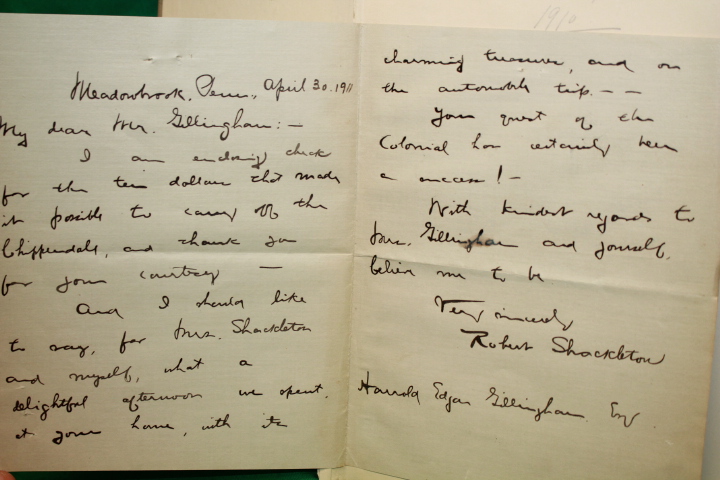 Meadowbrook, Penn., April 30. 1911
My dear Mr. Gillingham: —
I am enclosing check
for the ten dollars that made
it possible to carry off the
Chippendale, and thank you
for your courtesy —
And I should like
to say, for Mrs. Shackleton
and myself, what a
delightful afternoon we spent,
at your home, with its
1910
charming treasures, and on
the automobile trip. — —
Your quest of the
Colonial has certainly been
a success! —
With kindest regards to
Mrs. Gillingham and yourself,
believe me to be
Very sincerely
Robert Shackleton
Harrold Edgar Gillingham Esq.